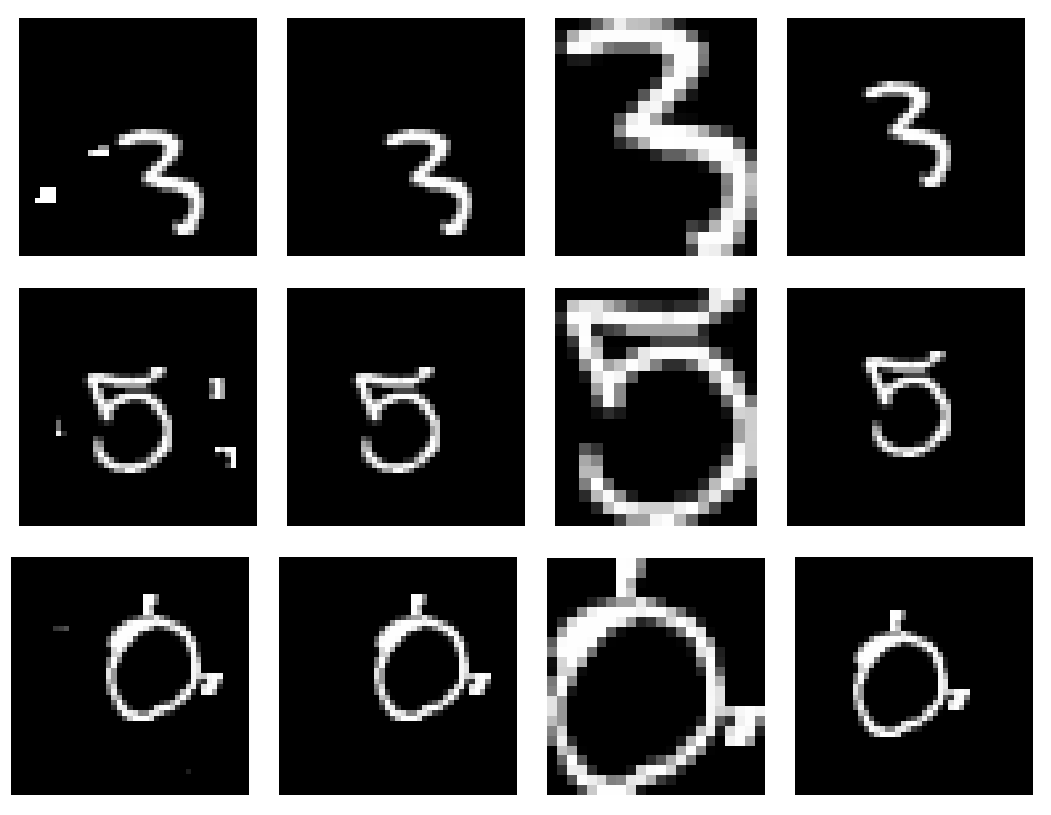 3 3 3 3
5 5 5 5
0 0 0 0